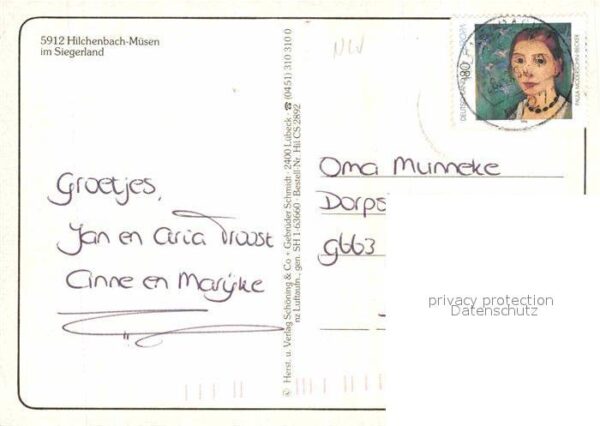 5912 Hilchenbach-Müsen
im Siegerland
NLV
DEUTSCHLAND
80
EUROPA
PAULA MODERSOHN-BECKER
Groetjes,
Jan en Aria Troost
Anne en Marijke
© Herst. u. Verlag Schöning & Co + Gebrüder Schmidt · 2400 Lübeck · ☎ (04 51) 310 310 0
nz Luftaufn., gen. SH 1-63660 · Bestell-Nr. Hil CS 2892
Oma Munneke
Dorps
9663
privacy protection
Datenschutz